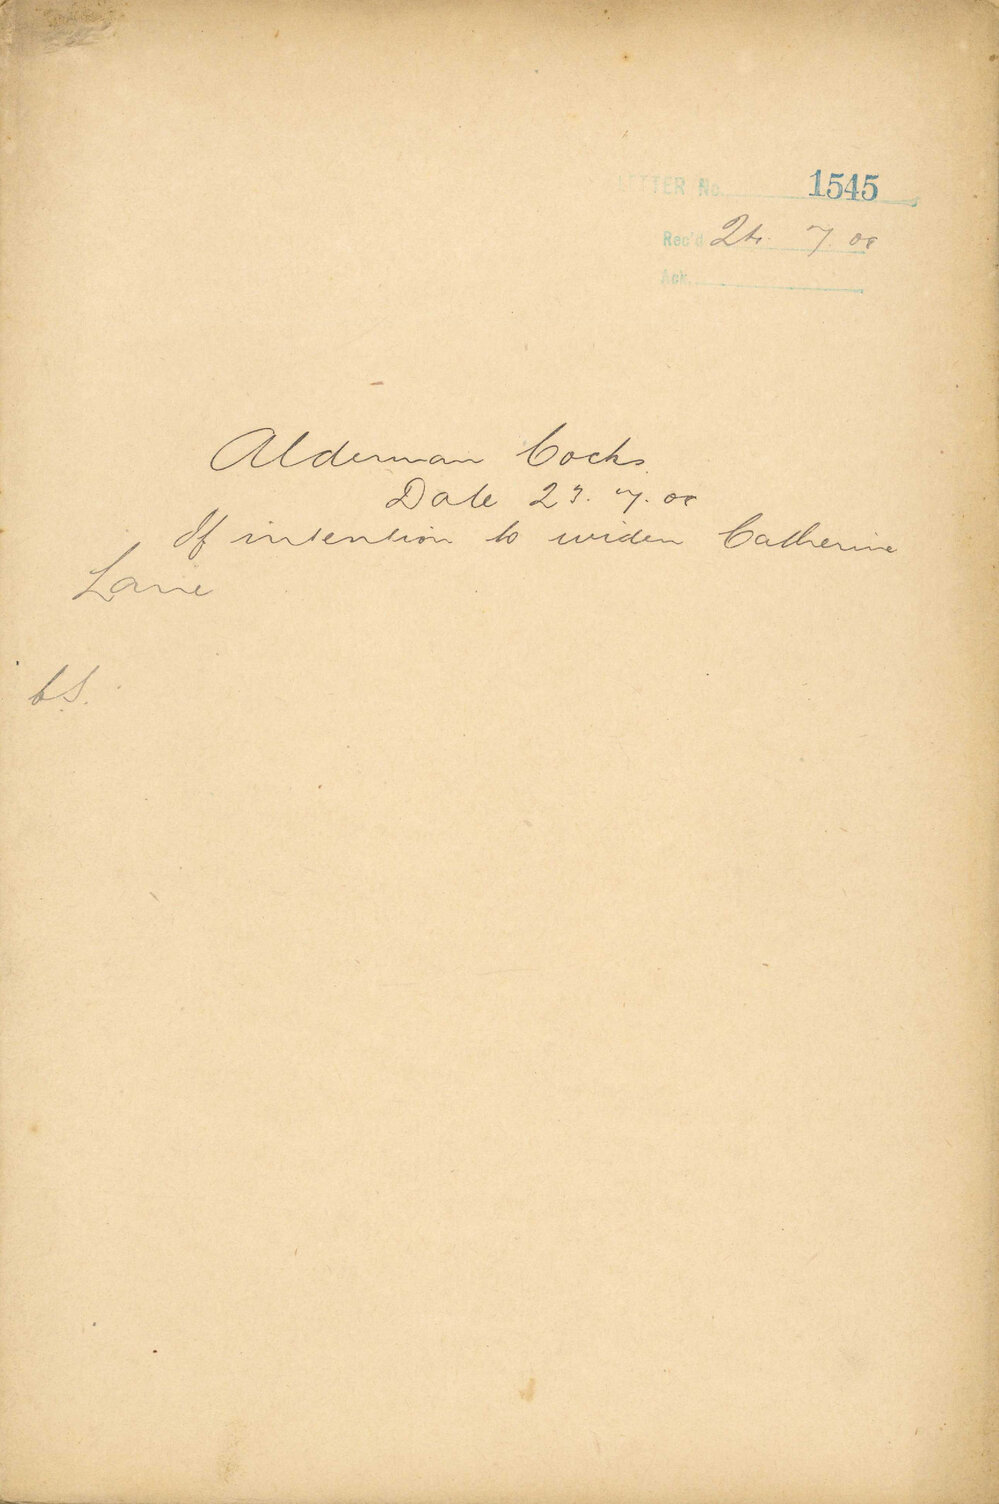 LETTER No. 1545
Rec'd 24. 7. 00
Ack.
Alderman Cocks
Date 23. 7. 00
If intention to widen Catherine
Lane